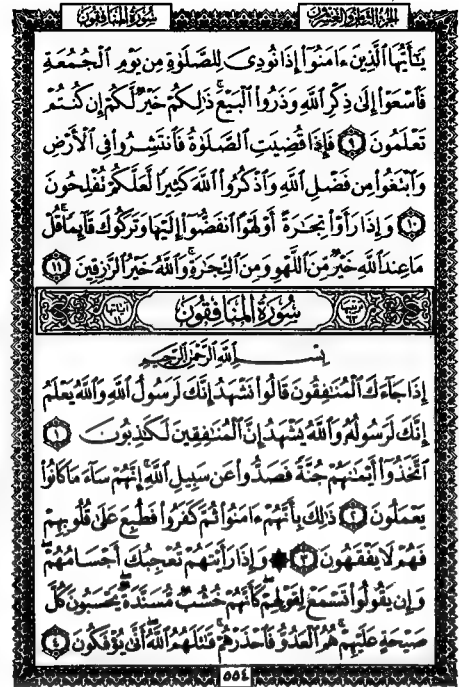 الجزء الثامن والعشرون
سورة المنافقون
يَٰٓأَيُّهَا ٱلَّذِينَ ءَامَنُوٓا۟ إِذَا نُودِىَ لِلصَّلَوٰةِ مِن يَوْمِ ٱلْجُمُعَةِ
فَٱسْعَوْا۟ إِلَىٰ ذِكْرِ ٱللَّهِ وَذَرُوا۟ ٱلْبَيْعَ ۚ ذَٰلِكُمْ خَيْرٌ لَّكُمْ إِن كُنتُمْ
تَعْلَمُونَ ٩ فَإِذَا قُضِيَتِ ٱلصَّلَوٰةُ فَٱنتَشِرُوا۟ فِى ٱلْأَرْضِ
وَٱبْتَغُوا۟ مِن فَضْلِ ٱللَّهِ وَٱذْكُرُوا۟ ٱللَّهَ كَثِيرًا لَّعَلَّكُمْ تُفْلِحُونَ
١٠ وَإِذَا رَأَوْا۟ تِجَٰرَةً أَوْ لَهْوًا ٱنفَضُّوٓا۟ إِلَيْهَا وَتَرَكُوكَ قَآئِمًا ۚ قُلْ
مَا عِندَ ٱللَّهِ خَيْرٌ مِّنَ ٱللَّهْوِ وَمِنَ ٱلتِّجَٰرَةِ ۚ وَٱللَّهُ خَيْرُ ٱلرَّٰزِقِينَ ١١
ترتيبها ٦٣
سُورَةُ المُنَافِقُونَ
آياتها ١١
بِسْمِ ٱللَّهِ ٱلرَّحْمَٰنِ ٱلرَّحِيمِ
إِذَا جَآءَكَ ٱلْمُنَٰفِقُونَ قَالُوا۟ نَشْهَدُ إِنَّكَ لَرَسُولُ ٱللَّهِ ۗ وَٱللَّهُ يَعْلَمُ
إِنَّكَ لَرَسُولُهُۥ وَٱللَّهُ يَشْهَدُ إِنَّ ٱلْمُنَٰفِقِينَ لَكَٰذِبُونَ ١
ٱتَّخَذُوٓا۟ أَيْمَٰنَهُمْ جُنَّةً فَصَدُّوا۟ عَن سَبِيلِ ٱللَّهِ ۚ إِنَّهُمْ سَآءَ مَا كَانُوا۟
يَعْمَلُونَ ٢ ذَٰلِكَ بِأَنَّهُمْ ءَامَنُوا۟ ثُمَّ كَفَرُوا۟ فَطُبِعَ عَلَىٰ قُلُوبِهِمْ
فَهُمْ لَا يَفْقَهُونَ ٣ ۞ وَإِذَا رَأَيْتَهُمْ تُعْجِبُكَ أَجْسَامُهُمْ ۖ
وَإِن يَقُولُوا۟ تَسْمَعْ لِقَوْلِهِمْ ۖ كَأَنَّهُمْ خُشُبٌ مُّسَنَّدَةٌ ۖ يَحْسَبُونَ كُلَّ
صَيْحَةٍ عَلَيْهِمْ ۚ هُمُ ٱلْعَدُوُّ فَٱحْذَرْهُمْ ۚ قَٰتَلَهُمُ ٱللَّهُ ۖ أَنَّىٰ يُؤْفَكُونَ ٤
٥٥٤